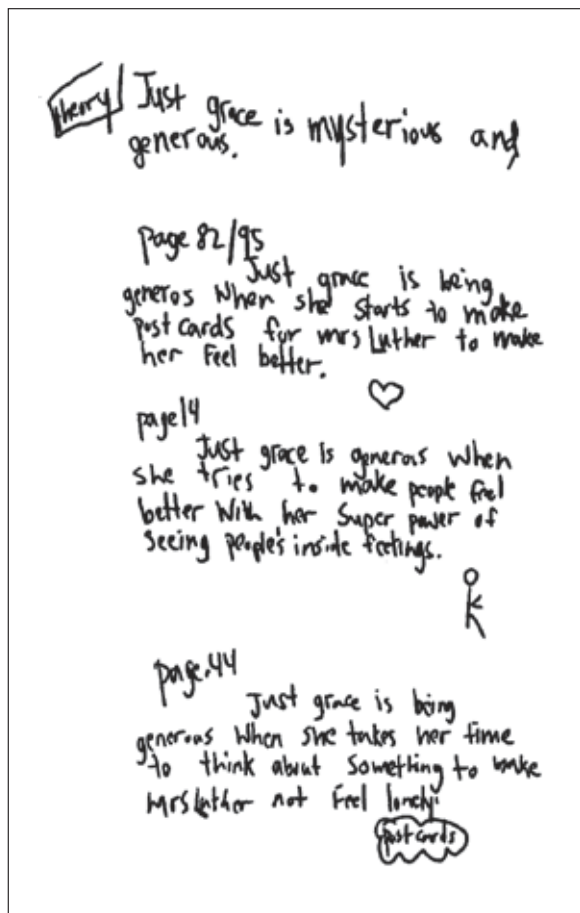 theory Just grace is mysterious and
generous.
page 82/95
Just grace is being
generos when she starts to make
post cards for mrs Luther to make
her Feel better.
page 14
Just grace is generous when
she tries to make people feel
better with her Super power of
seeing people's inside feelings.
page.44
Just grace is being
generous when she takes her time
to think about something to make
mrs Luther not feel lonely.
post cards